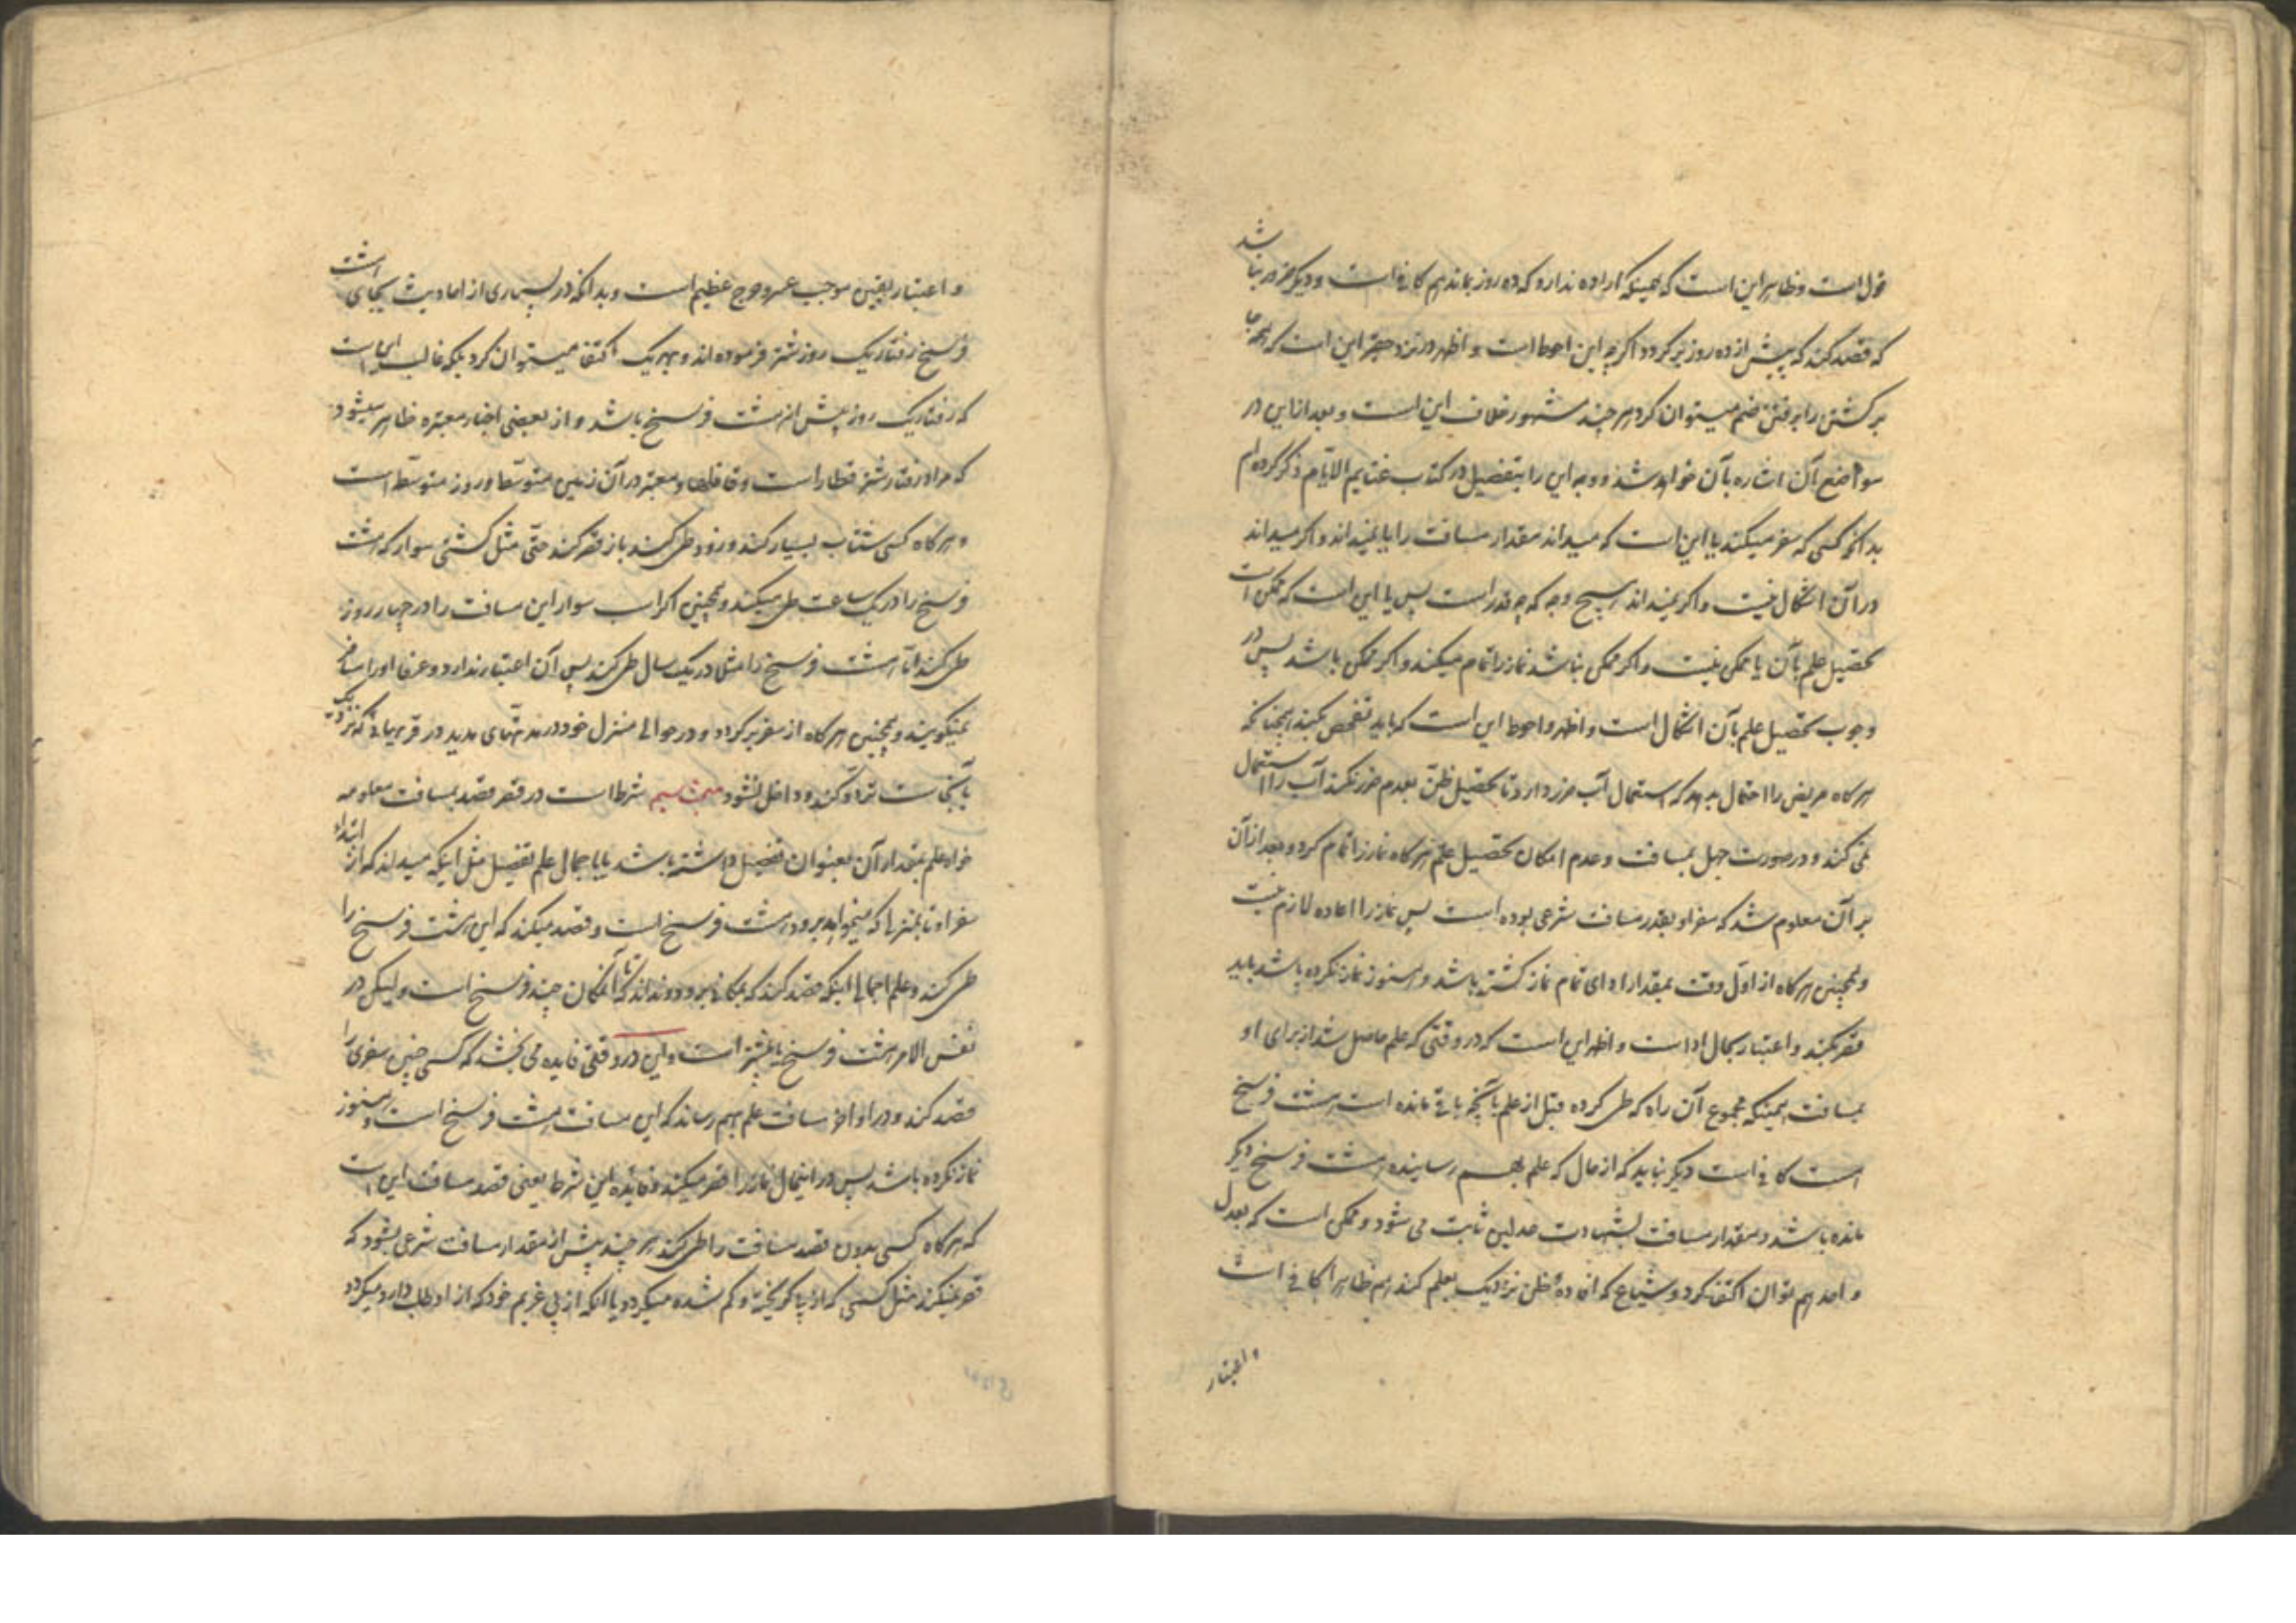 قول است و ظاهر این است که همینکه اراده ندارد که ده روز بماند هم کافی است و دیگر ضرور نباشد
که قصد کند که پیش از ده روز برگردد اگرچه این احوط است و اظهر در نزد حقیر این است که همه جا
برگشتن را برفتن ضم میتوان کرد هر چند مشهور خلاف این است و بعد از این در
مواضع آن اشاره بآن خواهد شد و وجه این را بتفصیل در کتاب غنایم الایام ذکر کرده‌ام
بدانکه کسی که سفر میکند یا این است که میداند مقدار مسافت را یا نمیداند و اگر میداند
در آن اشکال نیست و اگر نمیداند بهیچ وجه که چه قدر است پس یا این است که ممکن است
تحصیل علم بآن یا ممکن نیست و اگر ممکن نباشد نماز را تمام میکند و اگر ممکن باشد پس در
وجوب تحصیل علم بآن اشکال است و اظهر و احوط این است که باید تفحص بکند همچنانکه
هرگاه مریض را احتمال بدهد که استعمال آب ضرر دارد تا تحصیل ظن بعدم ضرر نکند آب را استعمال
نمی کند و در صورت جهل بمسافت و عدم امکان تحصیل علم هرگاه نماز را تمام کرد و بعد از آن
بر آن معلوم شد که سفر او بقدر مسافت شرعی بوده است پس نماز را اعاده لازم نیست
و همچنین هرگاه از اول وقت بمقدار ادای تمام نماز گذشته باشد و هنوز نماز نکرده باشد باید
قصر بکند و اعتبار بحال ادا است و اظهر این است که در وقتی که علم حاصل شد از برای او
بمسافت همینکه مجموع آن راه که طی کرده قبل از علم با آنچه باقی مانده است هشت فرسخ
است کافی است دیگر نباید که از حال که علم بهم رسانیده هشت فرسخ دیگر
مانده باشد و مقدار مسافت بشهادت عدلین ثابت می شود و ممکن است که بعدل
واحد هم توان اکتفا کرد و شیاع که افادهٔ ظن نزدیک بعلم کند هم ظاهرا کافی است
و اعتبار
و اعتبار یقین موجب عسر و حرج عظیم است و بدانکه در بسیاری از احادیث بجای هشت
فرسخ رفتار یک روز شتر فرموده‌اند و بهر یک اکتفا میتوان کرد بلکه غالب این است
که رفتار یک روز بیش از هشت فرسخ باشد و از بعضی اخبار معتبره ظاهر میشود
که مراد رفتار شتر قطار است و قافلها و معتبر در آن زمین متوسط و روز متوسط است
و هرگاه کسی شتاب بسیار کند و زود طی کند باز قصر کند حتی مثل کشتی سوار که هشت
فرسخ را در یک ساعت طی میکند و همچنین اگر اسب سوار این مسافت را در چهار روز
طی کند اما هشت فرسخ را مثلا در یک سال طی کند پس آن اعتبار ندارد و عرفا او را مسافر
نمیگویند و همچنین هرگاه از سفر برگردد و در حوالی منزل خود در مدتهای مدید در قریهائی که نزدیک
بآنجا است تردد کند و داخل نشود مبحث سیم شرط است در قصر قصد بمسافت معلومه
خواه علم بمقدار آن بعنوان تفصیل داشته باشد یا باجمال علم تفصیل مثل اینکه میداند که از ابتداء
سفر او تا بمنزلها که میخواهد برود هشت فرسخ است و قصد میکند که این هشت فرسخ را
طی کند و علم اجمالی اینکه قصد کند که بمکانی برود و نداند که تا آنمکان چند فرسخ است ولیکن در
نفس الامر هشت فرسخ یا بیشتر است و این در وقتی فایده می بخشد که کسی چنین سفری را
قصد کند و در اواخر مسافت علم بهم رساند که این مسافت هشت فرسخ است و هنوز
نماز نکرده باشد پس در اینحال نماز را قصر میکند و فایدهٔ این شرط یعنی قصد مسافت این است
که هرگاه کسی بدون قصد مسافت راه طی کند هر چند بیش از مقدار مسافت شرعی بشود که
قصر نمیکند مثل کسی که از پا گریخته و گم شده میگردد یا آنکه از پی غریم خود که از او طلب دارد میگردد